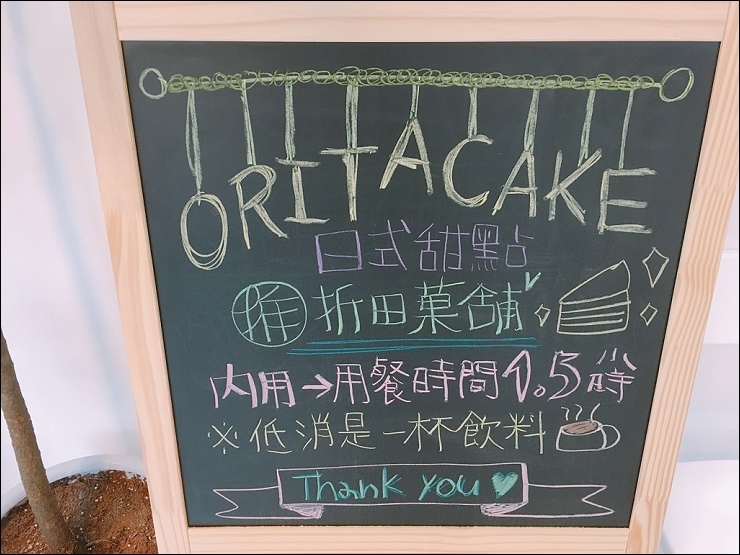 ORITACAKE
日式甜點
推 折田菓舖
内用→用餐時間1.5小時
※低消是一杯飲料
Thank you♥